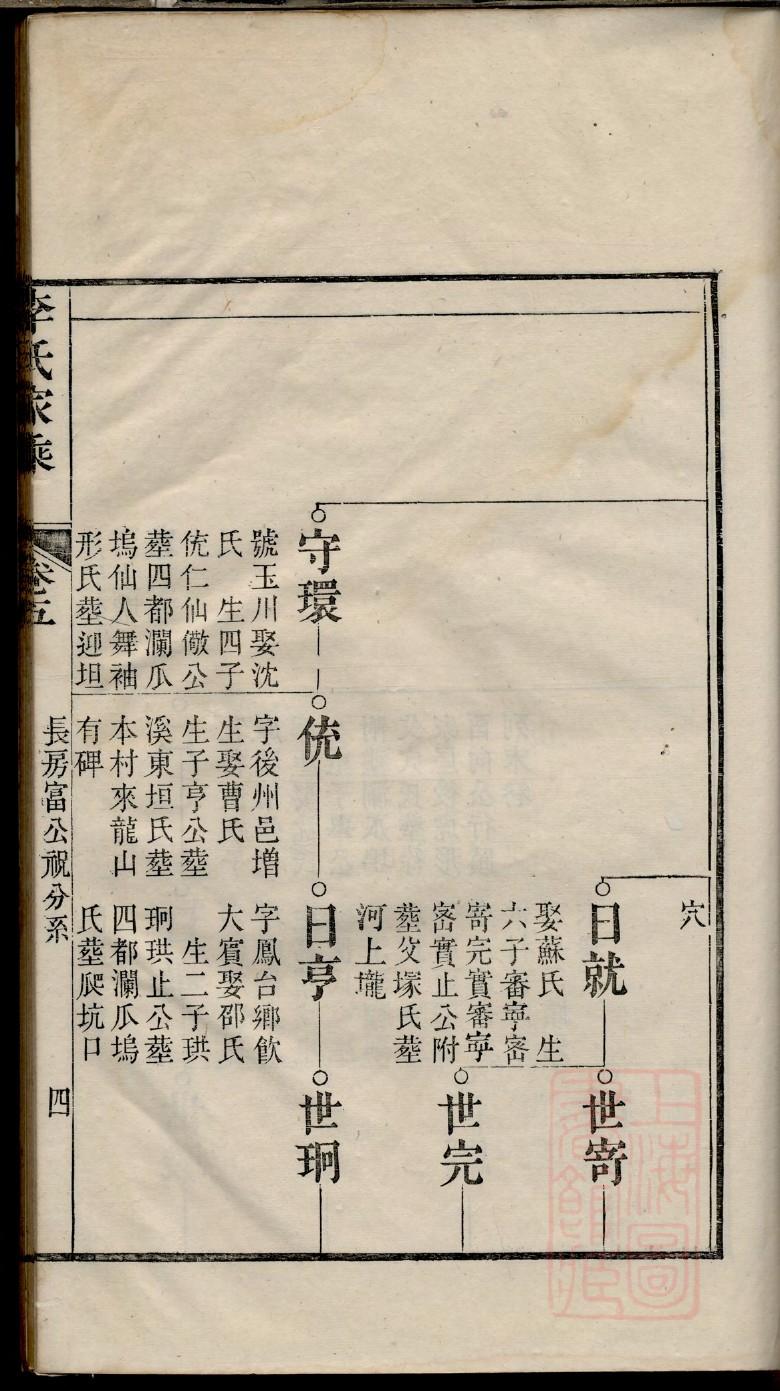 穴
日就
娶蘇氏 生
六子審寧密
寄完實審寧
密實止公附
塟父塚氏塟
河上壠
世寄
世完
守環
號玉川娶沈
氏 生四子
侊仁仙儆公
塟四都瀾瓜
塢仙人舞袖
形氏塟迎坦
侊
字後州邑增
生娶曹氏
生子亨公塟
溪東垣氏塟
本村來龍山
有碑
日亨
字鳳台鄉飲
大賓娶邵氏
生二子珙
珦珙止公塟
四都瀾瓜塢
氏塟爬坑口
世珦
李氏家乘
卷五
長房富公祝分系
四
上海圖書館藏